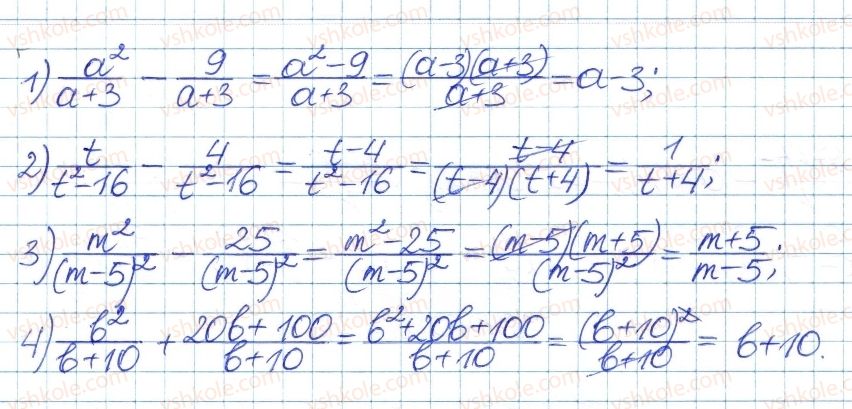 1) a²/(a+3) − 9/(a+3) = (a²−9)/(a+3) = (a−3)(a+3)/(a+3) = a−3;
2) t/(t²−16) − 4/(t²−16) = (t−4)/(t²−16) = (t−4)/((t−4)(t+4)) = 1/(t+4);
3) m²/(m−5)² − 25/(m−5)² = (m²−25)/(m−5)² = (m−5)(m+5)/(m−5)² = (m+5)/(m−5);
4) b²/(b+10) + (20b+100)/(b+10) = (b²+20b+100)/(b+10) = (b+10)²/(b+10) = b+10.
vshkole.com